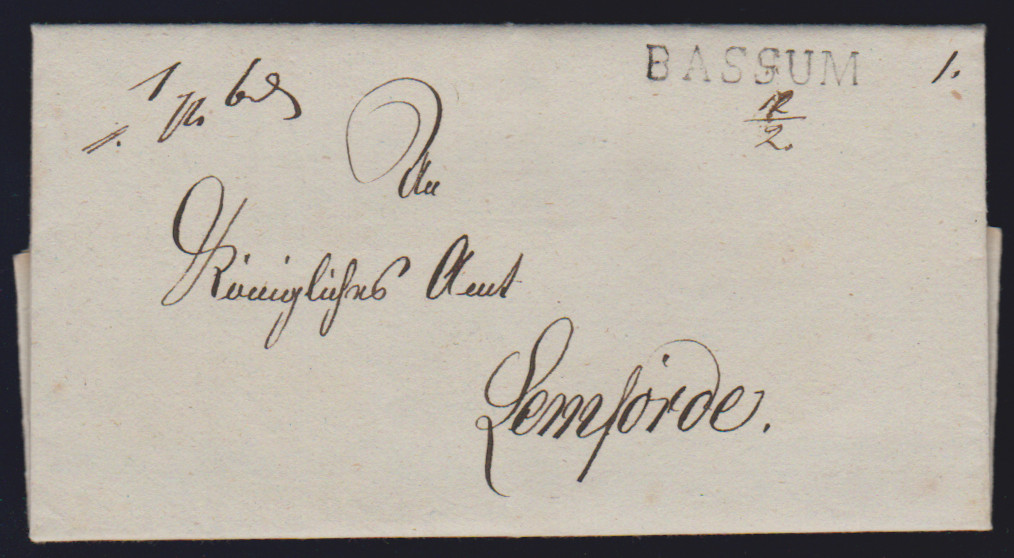 BASSUM 1.
12
2.
1
1.
An
Königliches Amt
Lemförde.